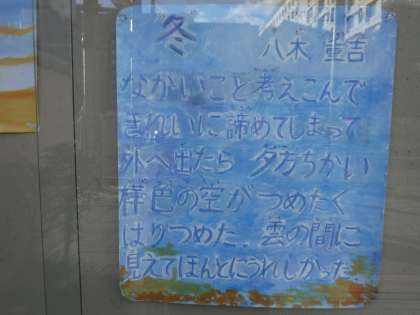 冬
八木 重吉
ながいこと考えこんで
きれいに諦めてしまって
外へ出たら 夕方ちかい
樺色の空が つめたく
はりつめた 雲の間に
見えてほんとにうれしかった